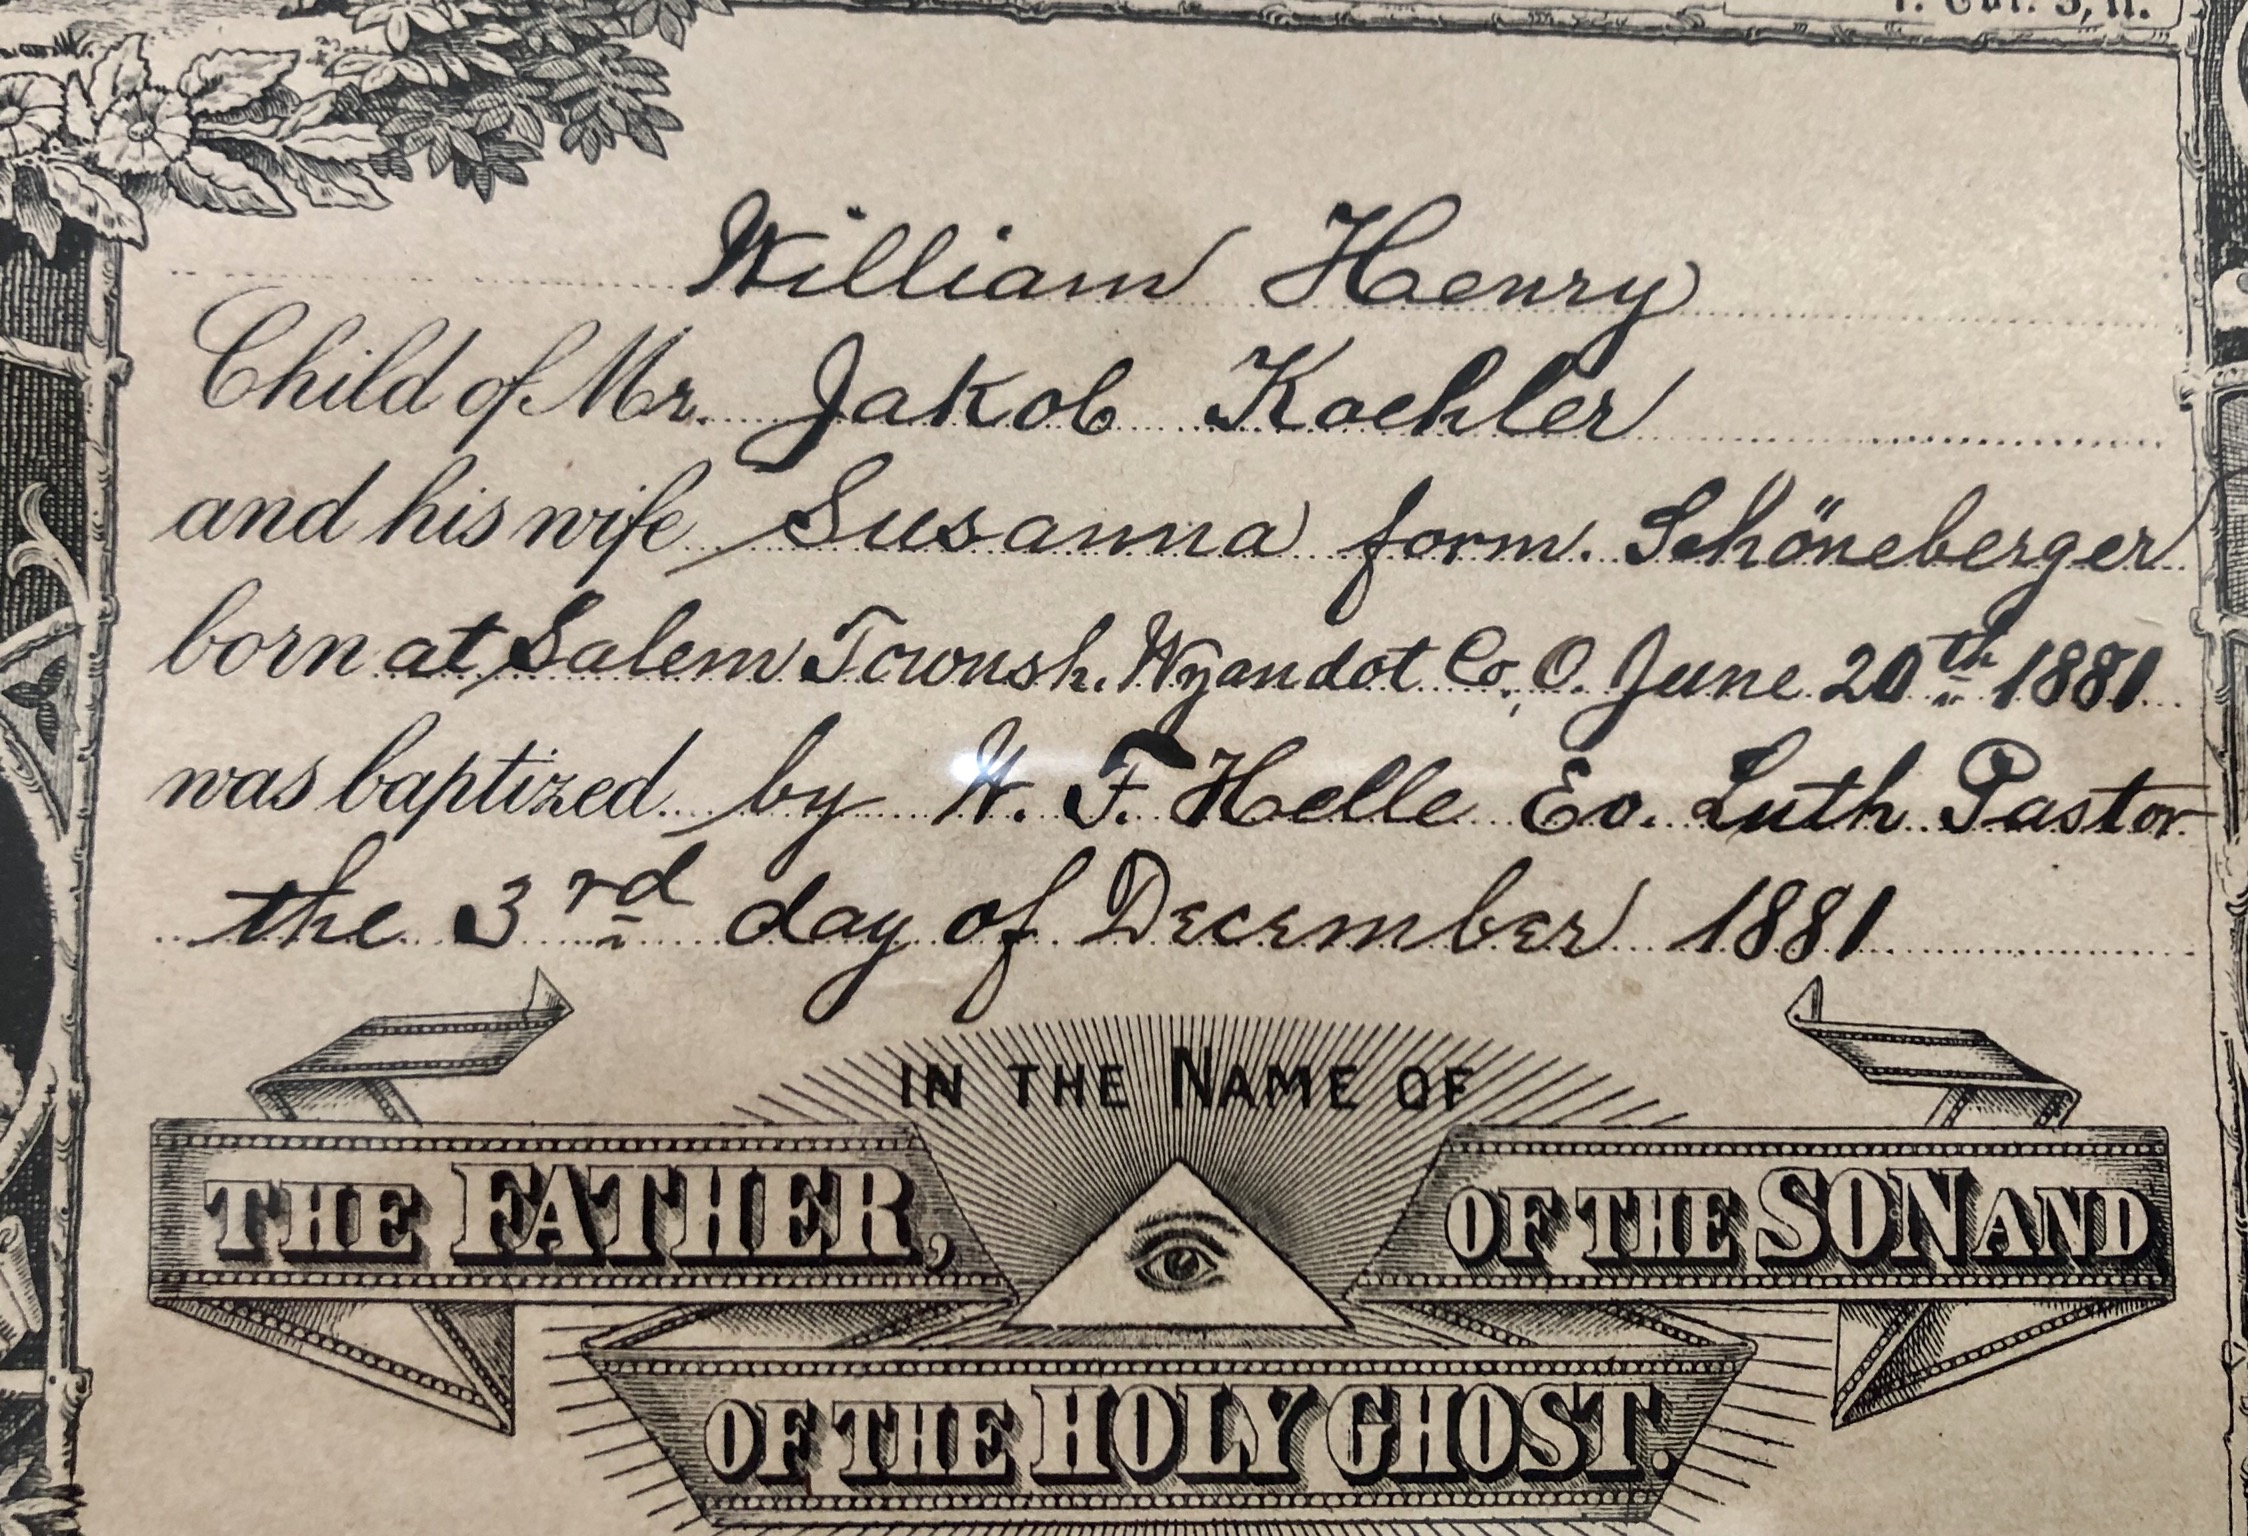 William Henry
Child of Mr. Jakob Koehler
and his wife Susanna form. Schöneberger
born at Salem Townsh. Wyandot Co, O. June 20th 1881
was baptized by W. F. Helle Ev. Luth Pastor
the 3rd day of December 1881
IN THE NAME OF
THE FATHER,
OF THE SON AND
OF THE HOLY GHOST.